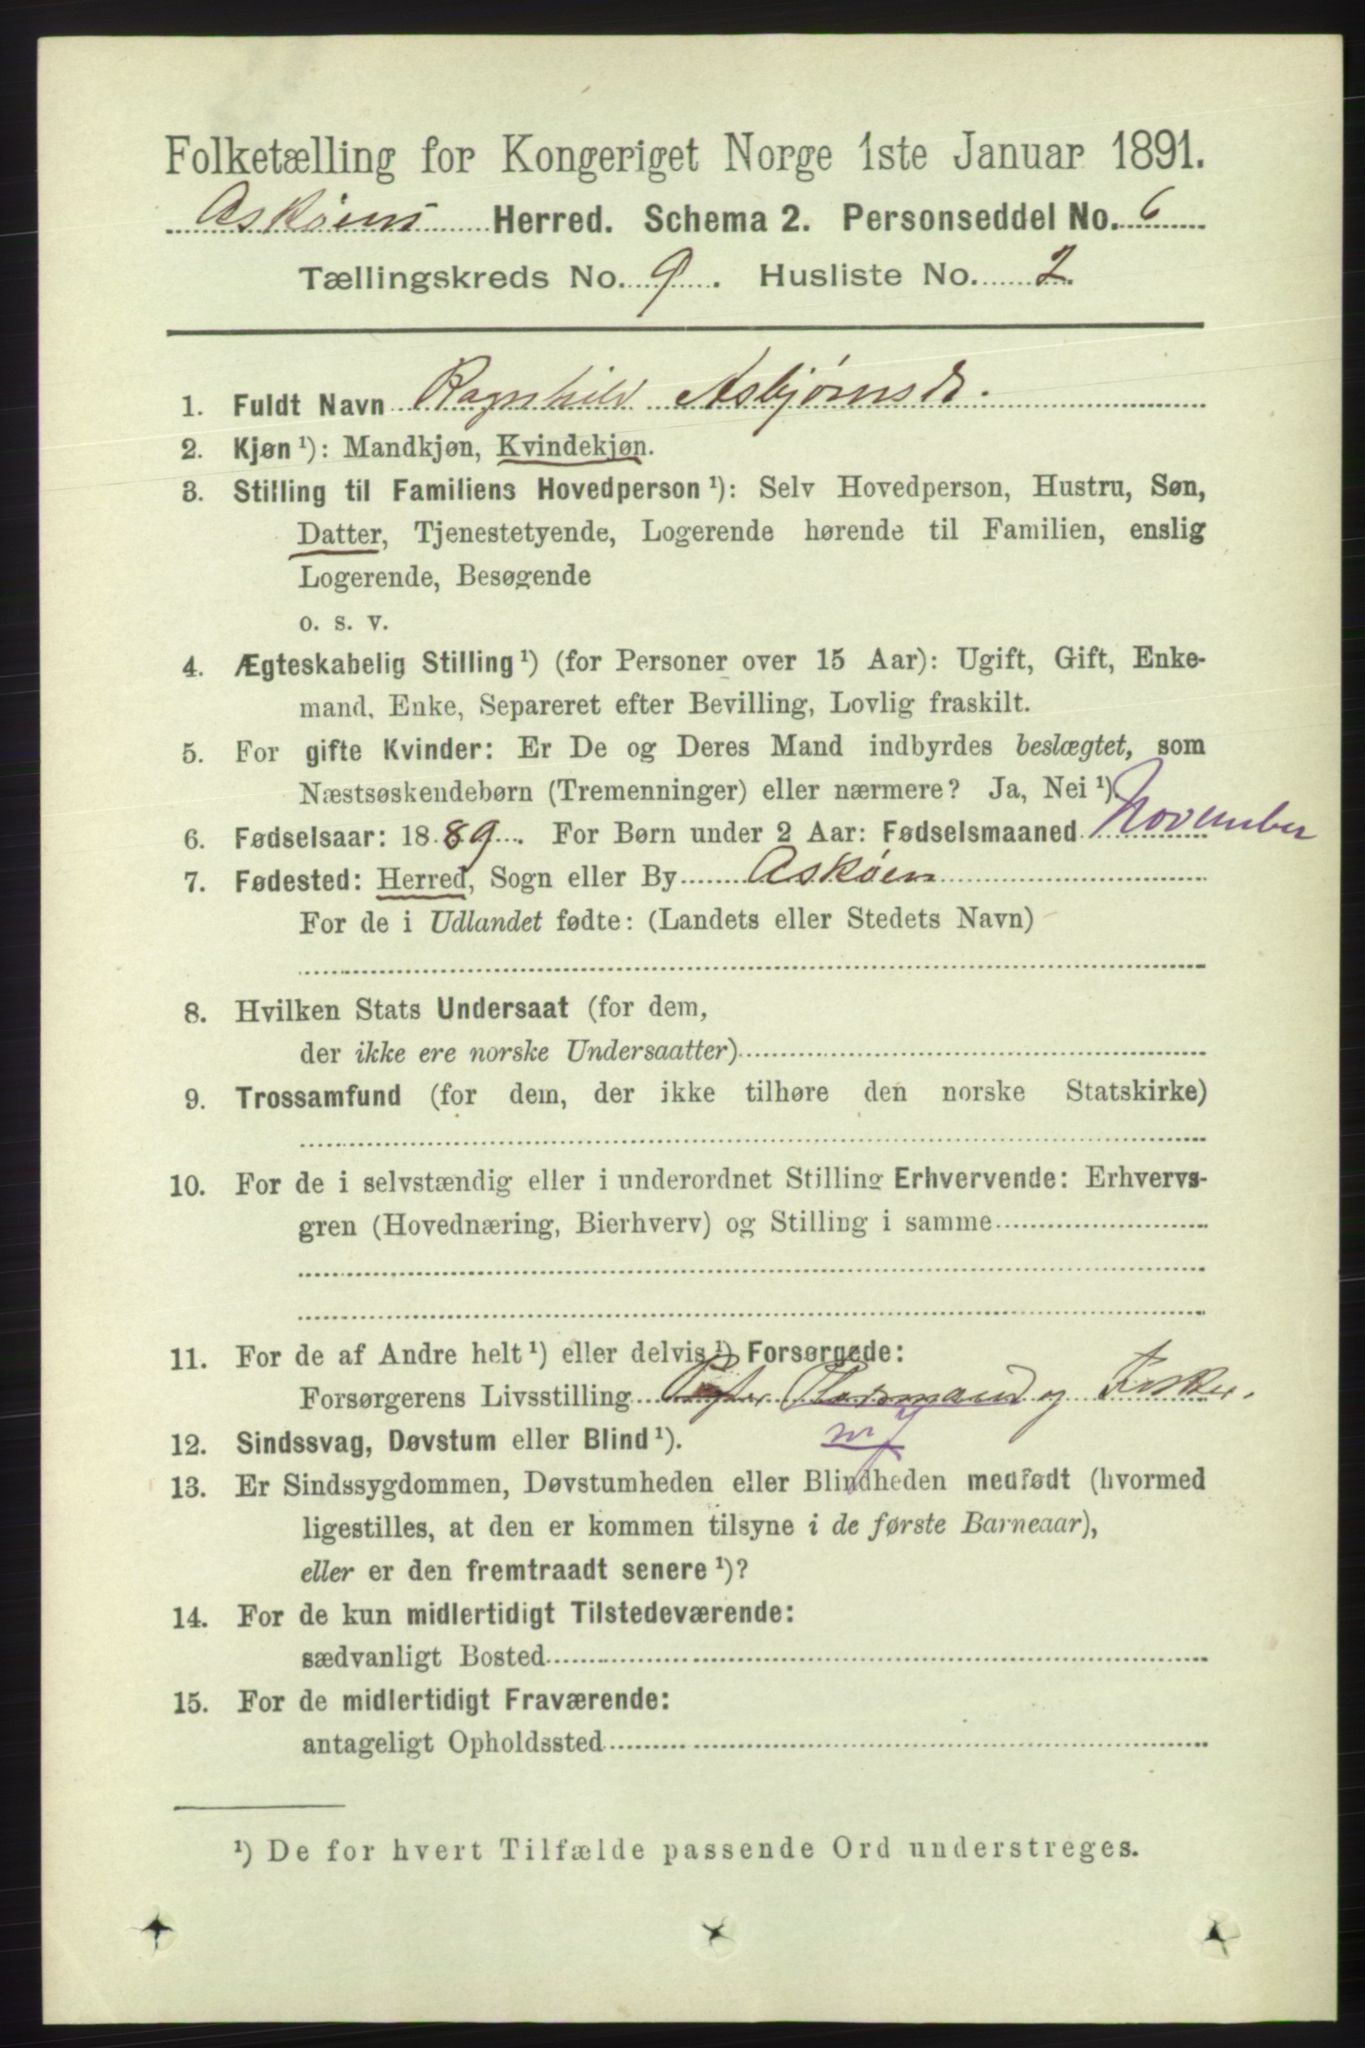 Folketælling for Kongeriget Norge 1ste Januar 1891.
Askøens Herred. Schema 2. Personseddel No. 6
Tællingskreds No. 9. Husliste No. 2.
1. Fuldt Navn Ragnhild Asbjørnsd.
2. Kjøn ¹): Mandkjøn, Kvindekjøn.
3. Stilling til Familiens Hovedperson ¹): Selv Hovedperson, Hustru, Søn,
Datter, Tjenestetyende, Logerende hørende til Familien, enslig
Logerende, Besøgende
o. s. v.
4. Ægteskabelig Stilling ¹) (for Personer over 15 Aar): Ugift, Gift, Enke-
mand, Enke, Separeret efter Bevilling, Lovlig fraskilt.
5. For gifte Kvinder: Er De og Deres Mand indbyrdes beslægtet, som
Næstsøskendebørn (Tremenninger) eller nærmere? Ja, Nei ¹).
6. Fødselsaar: 1889. For Børn under 2 Aar: Fødselsmaaned November
7. Fødested: Herred, Sogn eller By Askøen
For de i Udlandet fødte: (Landets eller Stedets Navn)
8. Hvilken Stats Undersaat (for dem,
der ikke ere norske Undersaatter)
9. Trossamfund (for dem, der ikke tilhøre den norske Statskirke)
10. For de i selvstændig eller i underordnet Stilling Erhvervende: Erhvervs-
gren (Hovednæring, Bierhverv) og Stilling i samme
11. For de af Andre helt ¹) eller delvis ¹) Forsørgede:
Forsørgerens Livsstilling og Fisker.
12. Sindssvag, Døvstum eller Blind ¹).
13. Er Sindssygdommen, Døvstumheden eller Blindheden medfødt (hvormed
ligestilles, at den er kommen tilsyne i de første Barneaar),
eller er den fremtraadt senere ¹)?
14. For de kun midlertidigt Tilstedeværende:
sædvanligt Bosted
15. For de midlertidigt Fraværende:
antageligt Opholdssted
¹) De for hvert Tilfælde passende Ord understreges.